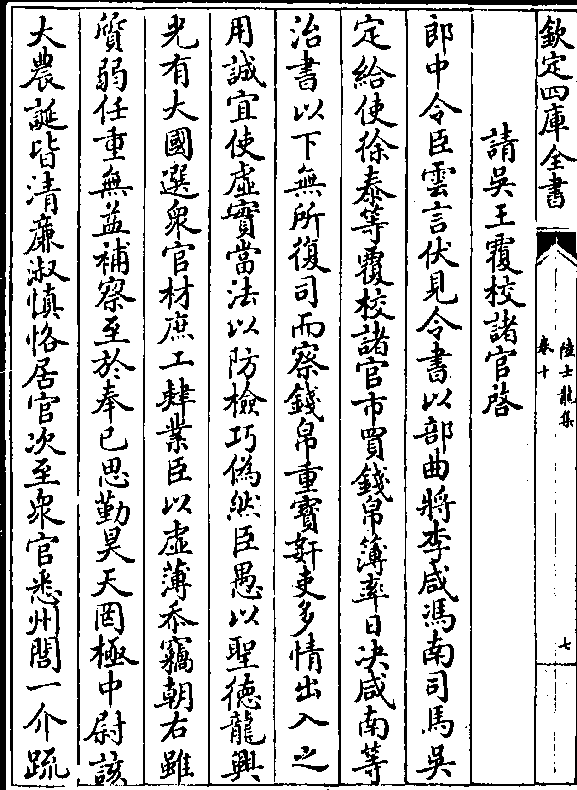 欽定四庫全書
陸士龍集
卷十
七
請吳王覆校諸官啓
郎中令臣雲言伏見令書以部曲將李咸馮南司馬吳
定給使徐泰等覆校諸官市買錢帛簿率日決咸南等
治書以下無所復司而察錢帛重寶姧吏多情出入之
用誠宜使虛實當法以防檢巧偽然臣愚以聖徳龍興
光有大國選衆官材庶工肄業臣以虛薄忝竊朝右雖
質弱任重無益補察至於奉己思勤昊天罔極中尉該
大農誕皆清廉淑慎恪居官次至衆官悉州閭一介疏